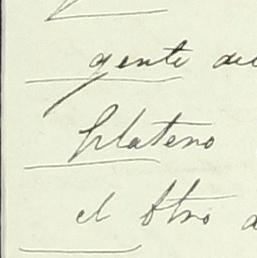 gente de
plateno
el otro